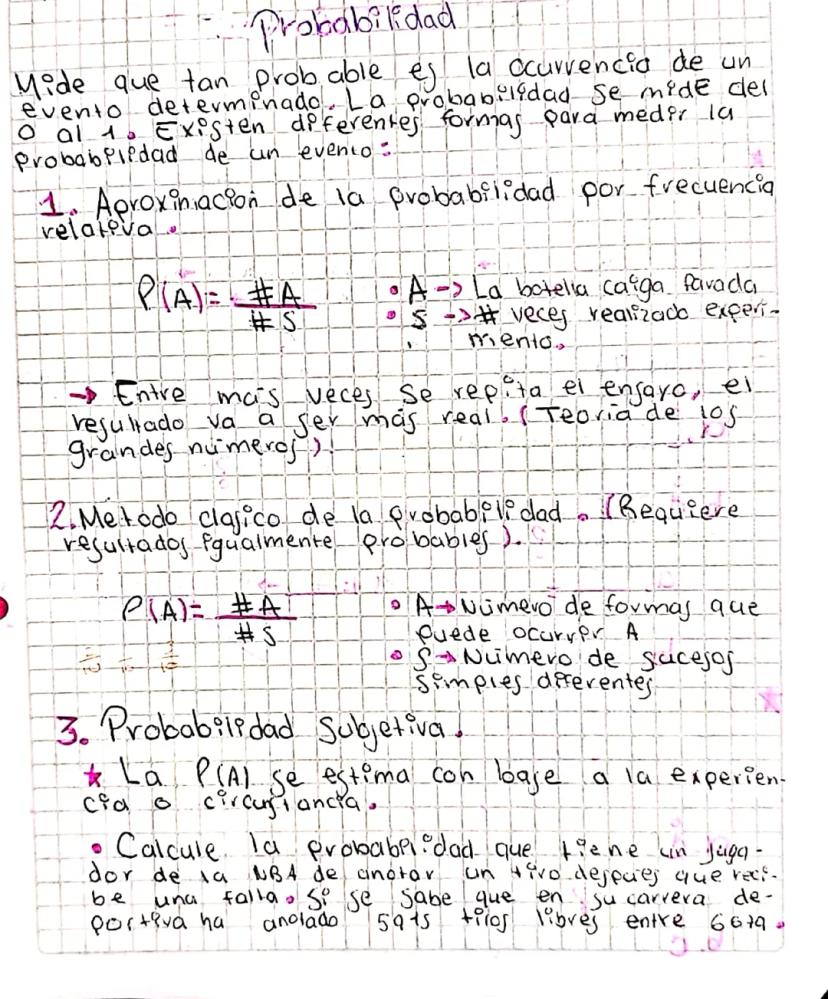 Probabilidad
Mide que tan probable es la ocurrencia de un
evento determinado. La probabilidad se mide del
0 al 1. Existen diferentes formas para medir la
probabilidad de un evento:
1. Aproximación de la probabilidad por frecuencia
relativa.
P(A) = #A / #S
• A -> La botella caiga parada
• S -> # veces realizado experi-
miento.
→ Entre más veces se repita el ensayo, el
resultado va a ser más real. (Teoría de los
grandes números).
2. Metodo clasico de la probabilidad. (Requiere
resultados igualmente probables).
P(A) = #A / #S
• A → Número de formas que
puede ocurrir A
• S → Número de sucesos
simples diferentes
3. Probabilidad Subjetiva.
★ La P(A) se estima con base a la experien-
cia o circunstancia.
• Calcule la probabilidad que tiene un juga-
dor de la NBA de anotar un tiro despues que reci-
be una falta. Si se sabe que en su carrera de-
portiva ha anotado 5915 tiros libres entre